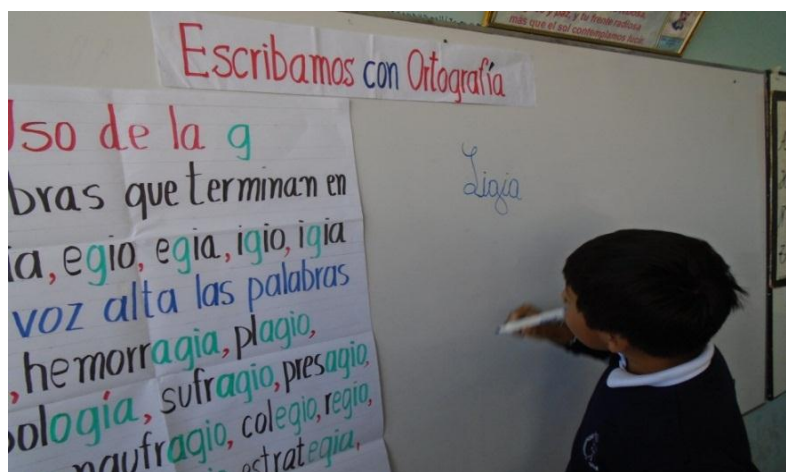 más que el sol contemplamos lucir
Escribamos con Ortografía
Uso de la g
bras que terminan en
ia, egio, egia, igio, igia
voz alta las palabras
, hemorragia, plagio,
ología, sufragio, presagio,
naufragio, colegio, regio,
estrategia,
Ligia